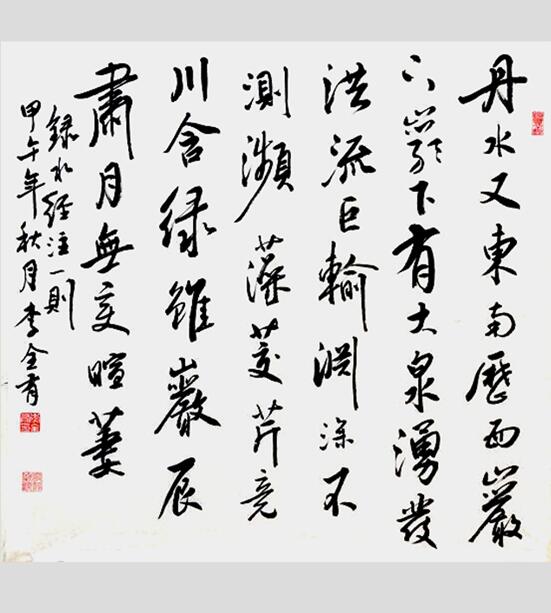 丹水又東南歷西巖
下巖下有大泉湧發
洪流巨輸淵深不
測瀕藻茭芹竟
川含緑雖巖辰
肅月無变暄萋
録水經注一則
甲午年秋月李全有